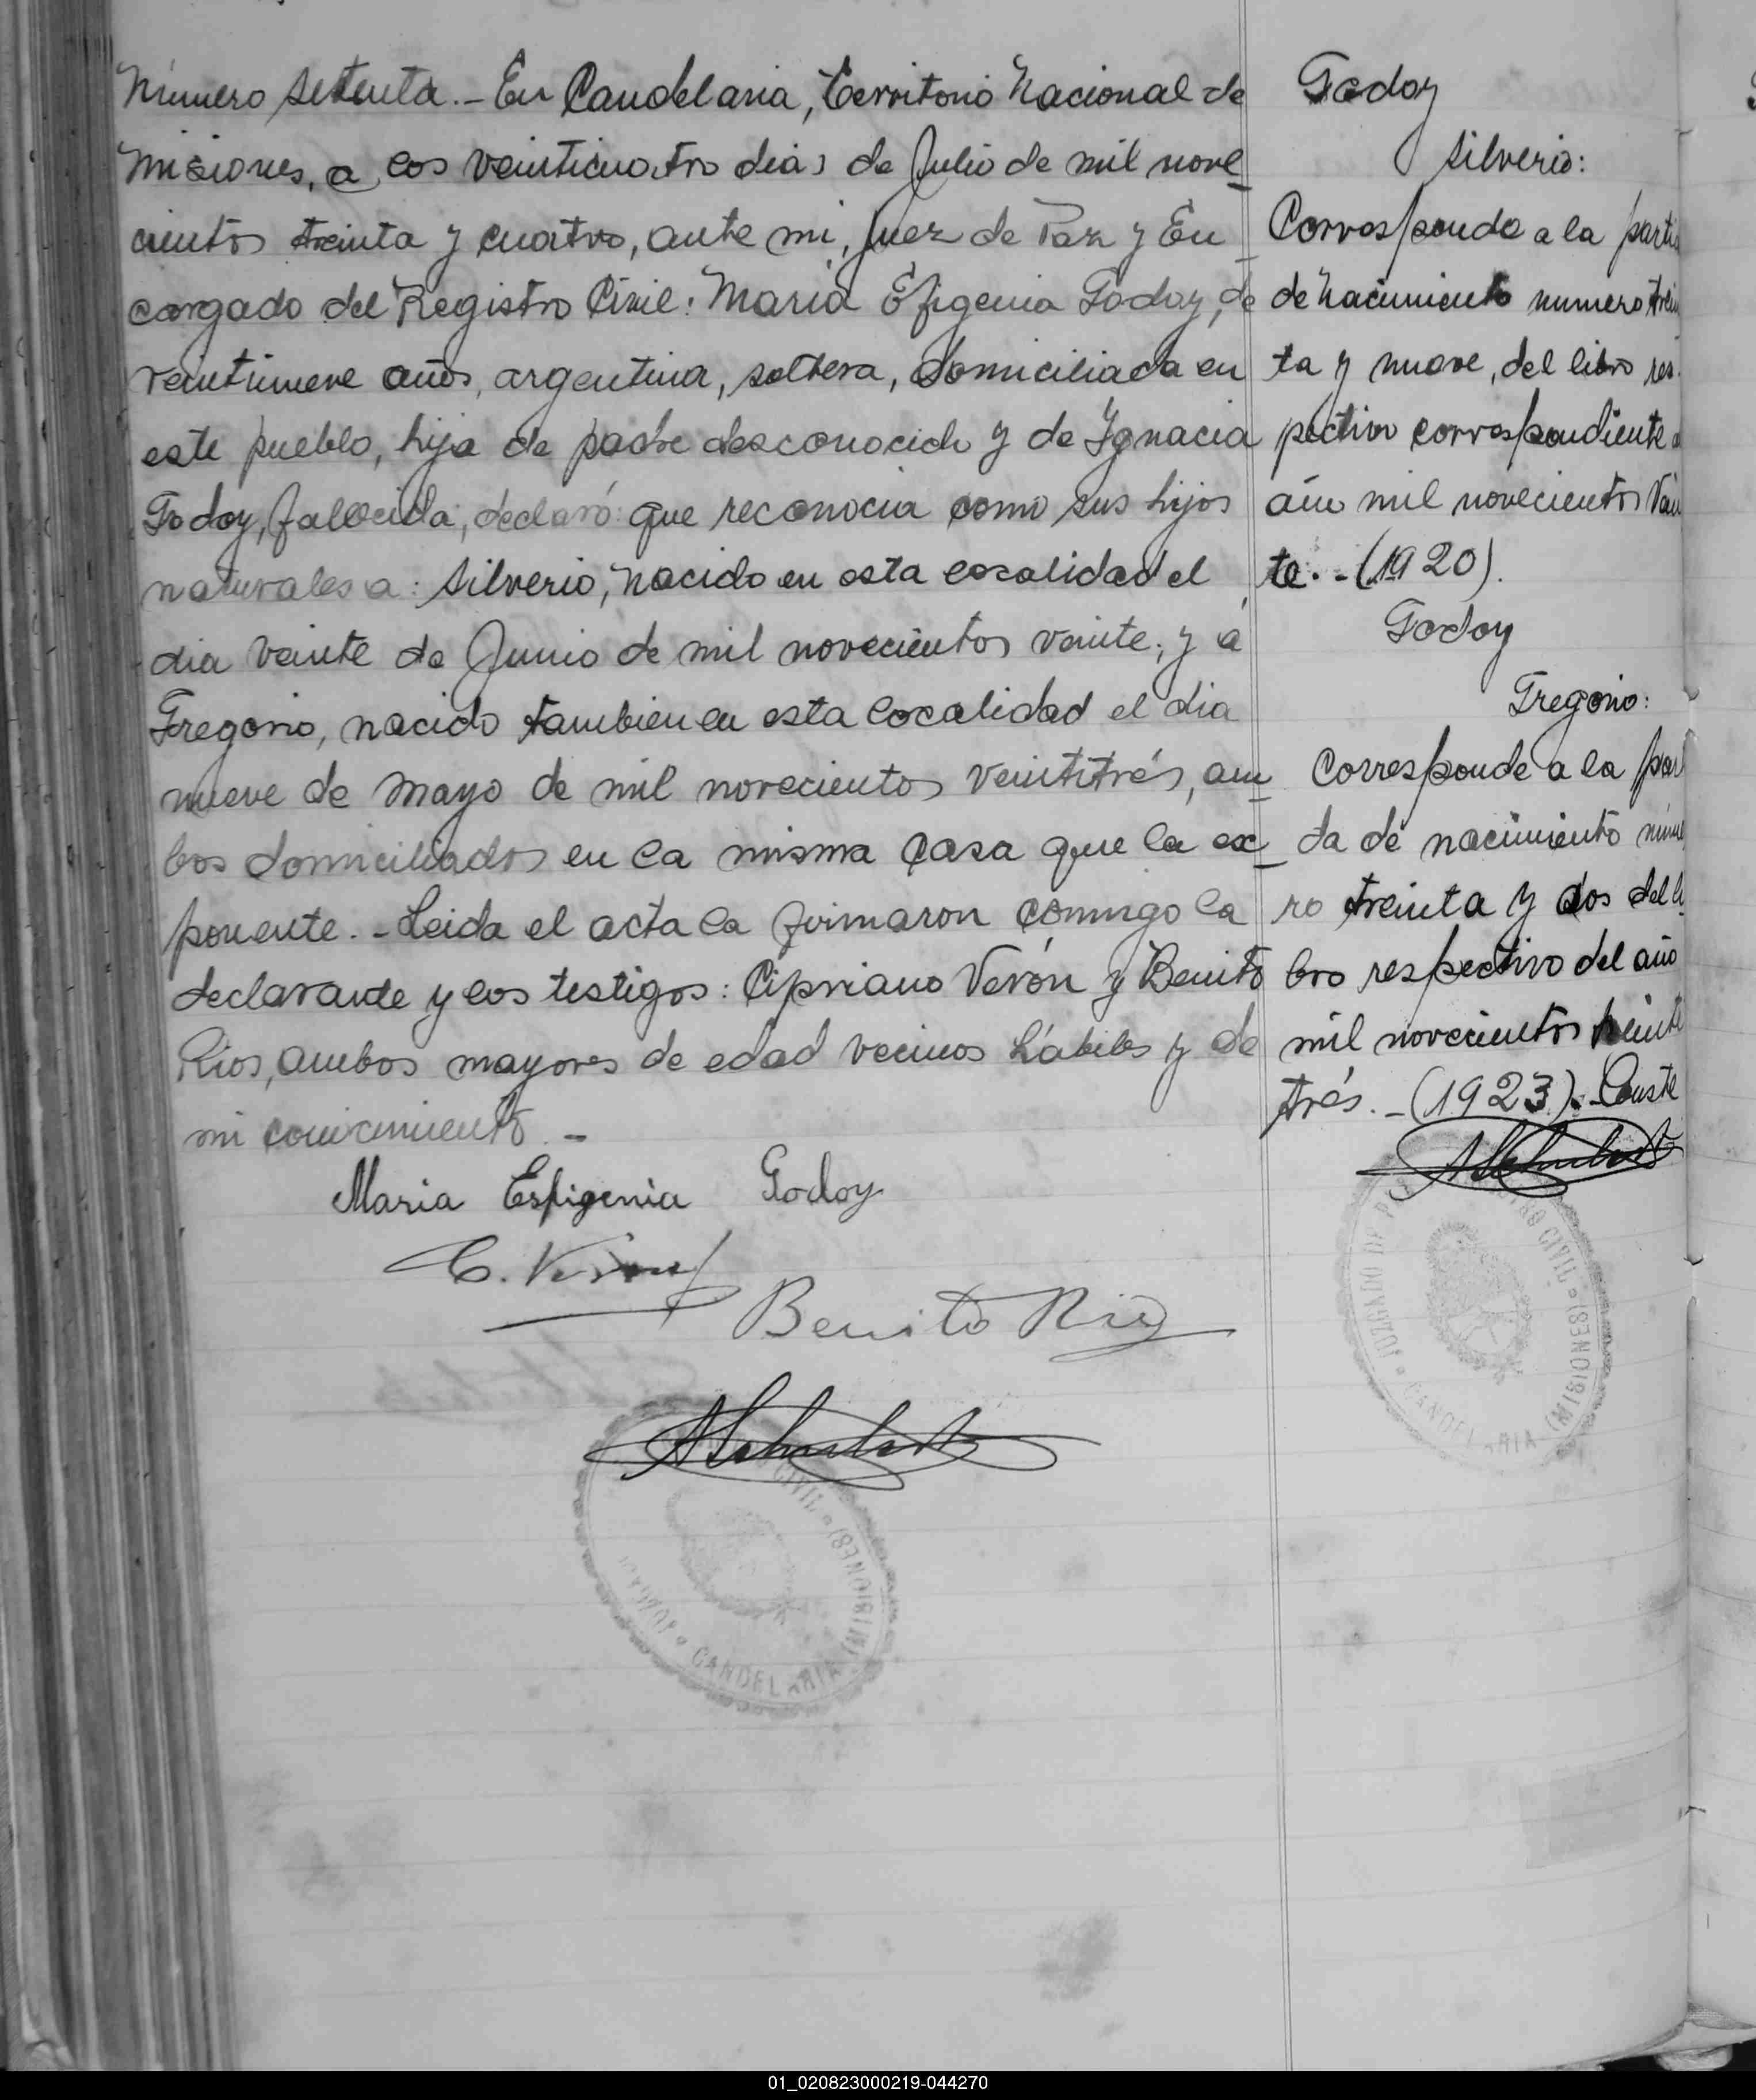 Número setenta.- En Candelaria, Territorio Nacional de
Misiones, a los veinticuatro dias de Julio de mil nove_
cientos treinta y cuatro, ante mi, Juez de Paz y En_
cargado del Registro Civil: Maria Efigenia Godoy, de
veintinueve años, argentina, soltera, domiciliada en
este pueblo, hija de padre desconocido y de Ygnacia
Godoy, fallecida, declaró: que reconocia como sus hijos
naturales a: Silverio, nacido en esta localidad el
dia veinte de Junio de mil novecientos veinte; y á
Gregorio, nacido tambien en esta localidad el dia
nueve de Mayo de mil novecientos veintitrés, am_
bos domiciliados en la misma casa que la ex_
ponente.- Leida el acta la firmaron conmigo la
declarante y los testigos: Cipriano Verón y Benito
Rios, ambos mayores de edad vecinos hábiles y de
mi conocimiento.-
Maria Esfigenia Godoy
C. Verón
Benito Rio
CIVIL • (MISIONES) • CANDELARIA
Godoy
Silverio:
Corresponde a la parti
de Nacimiento numero trein
ta y nueve, del libro res_
pectivo correspondiente a
año mil novecientos Vein
te.-(1920).
Godoy
Gregorio:
Corresponde a la par
da de nacimiento núme
ro treinta y dos del li_
bro respectivo del año
mil novecientos veinte
trés.-(1923).-Conste
JUZGADO DE P CIVIL • (MISIONES) • CANDELARIA
01_020823000219-044270